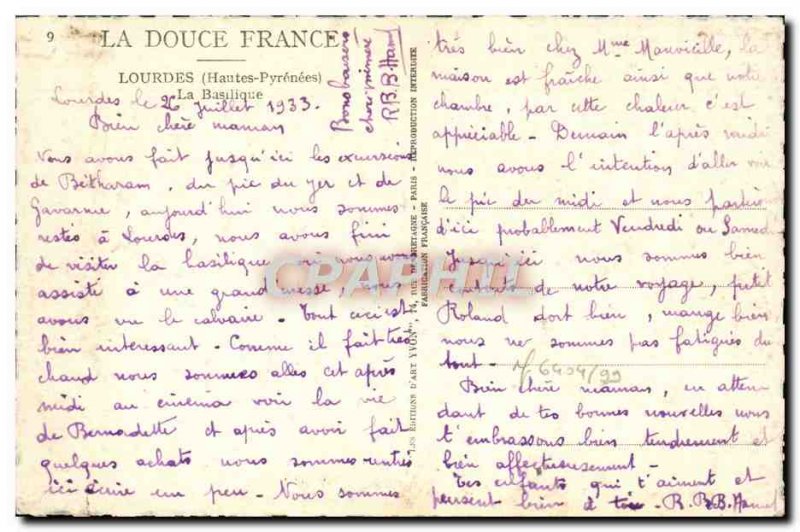 9 LA DOUCE FRANCE
LOURDES (Hautes-Pyrénées)
La Basilique
Lourdes le 26 Juillet 1933.
Bien chère maman
Nous avons fait jusqu'ici les excursions
de Bétharam, du pic du Jer et de
Gavarnie, aujourd'hui nous sommes
restés à Lourdes, nous avons fini
de visiter la basilique où nous avons
assisté à une grand messe, nous
avons vu le calvaire - Tout ceci est
bien interessant - Comme il fait très
chaud nous sommes allés cet après
midi au cinéma voir la vie
de Bernadette et après avoir fait
quelques achats nous sommes rentrés
ici écrire un peu - Nous sommes
Bons baisers
R.B.B.
LES EDITIONS D'ART YVON, RUE DE BRETAGNE - PARIS - REPRODUCTION INTERDITE
FABRICATION FRANÇAISE
CPARPHIL
très bien chez Mme la
maison est fraîche ainsi que notre
chambre, par cette chaleur c'est
appréciable - Demain l'après midi
nous avons l'intention d'aller voir
le pic du midi et nous partirons
d'ici probablement Vendredi ou Samedi
Jusqu'ici nous sommes bien
contents de notre voyage, petit
Roland dort bien, mange bien
nous ne sommes pas fatigués du
tout - N. 6404/99
Bien chère maman, en atten
dant de tes bonnes nouvelles nous
t'embrassons bien tendrement et
bien affectueusement -
Tes enfants qui t'aiment et
pensent bien à toi - R.B.B.